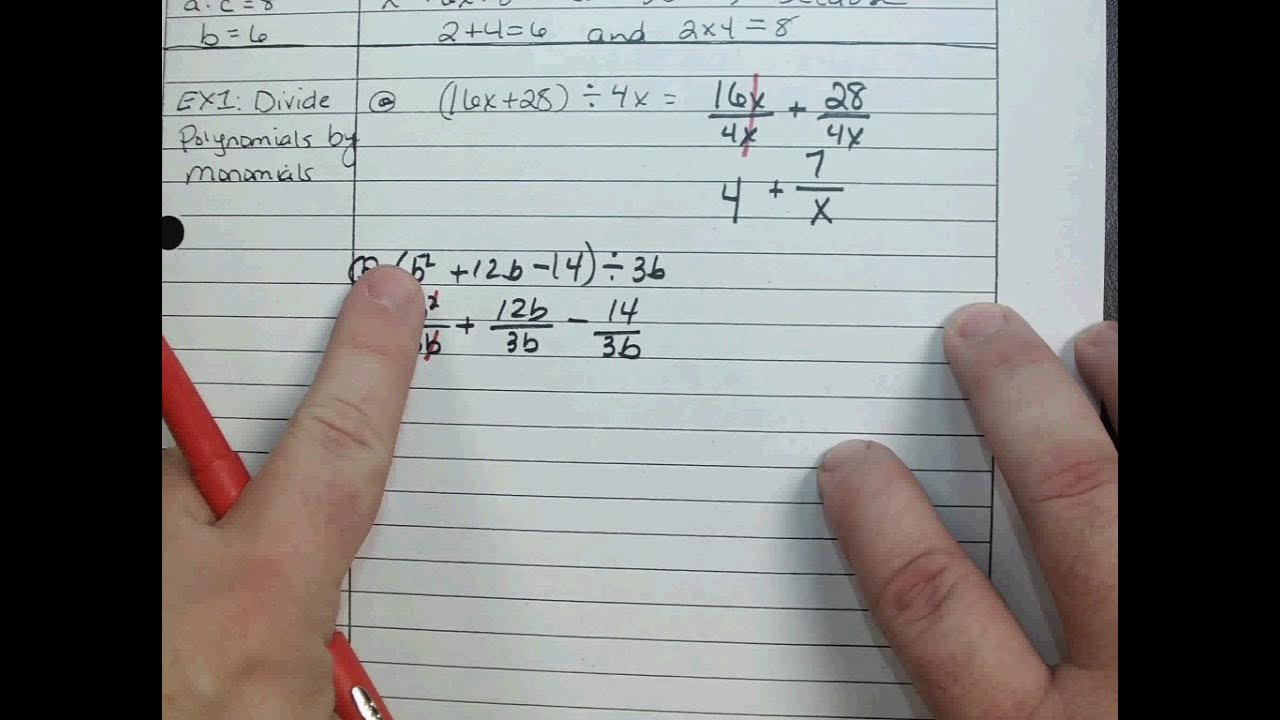 a·c=8
b=6
2+4=6 and 2x4=8
EX1: Divide Polynomials by Monomials
ⓐ (16x+28) ÷ 4x = 16x/4x + 28/4x
4 + 7/x
(b² +12b -14) ÷ 3b
+ 12b/3b - 14/3b